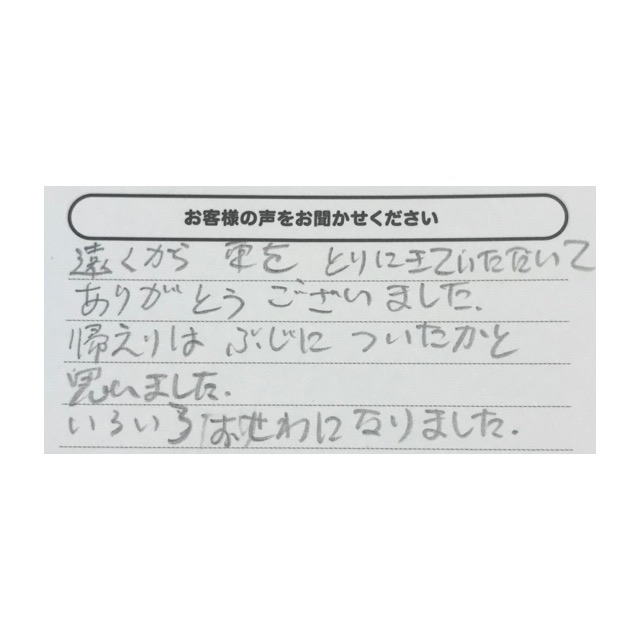 お客様の声をお聞かせください
遠くから 車を とりにきていただいて
ありがとう ございました.
帰えりは ぶじに ついたかと
思いました.
いろいろ おせわになりました.